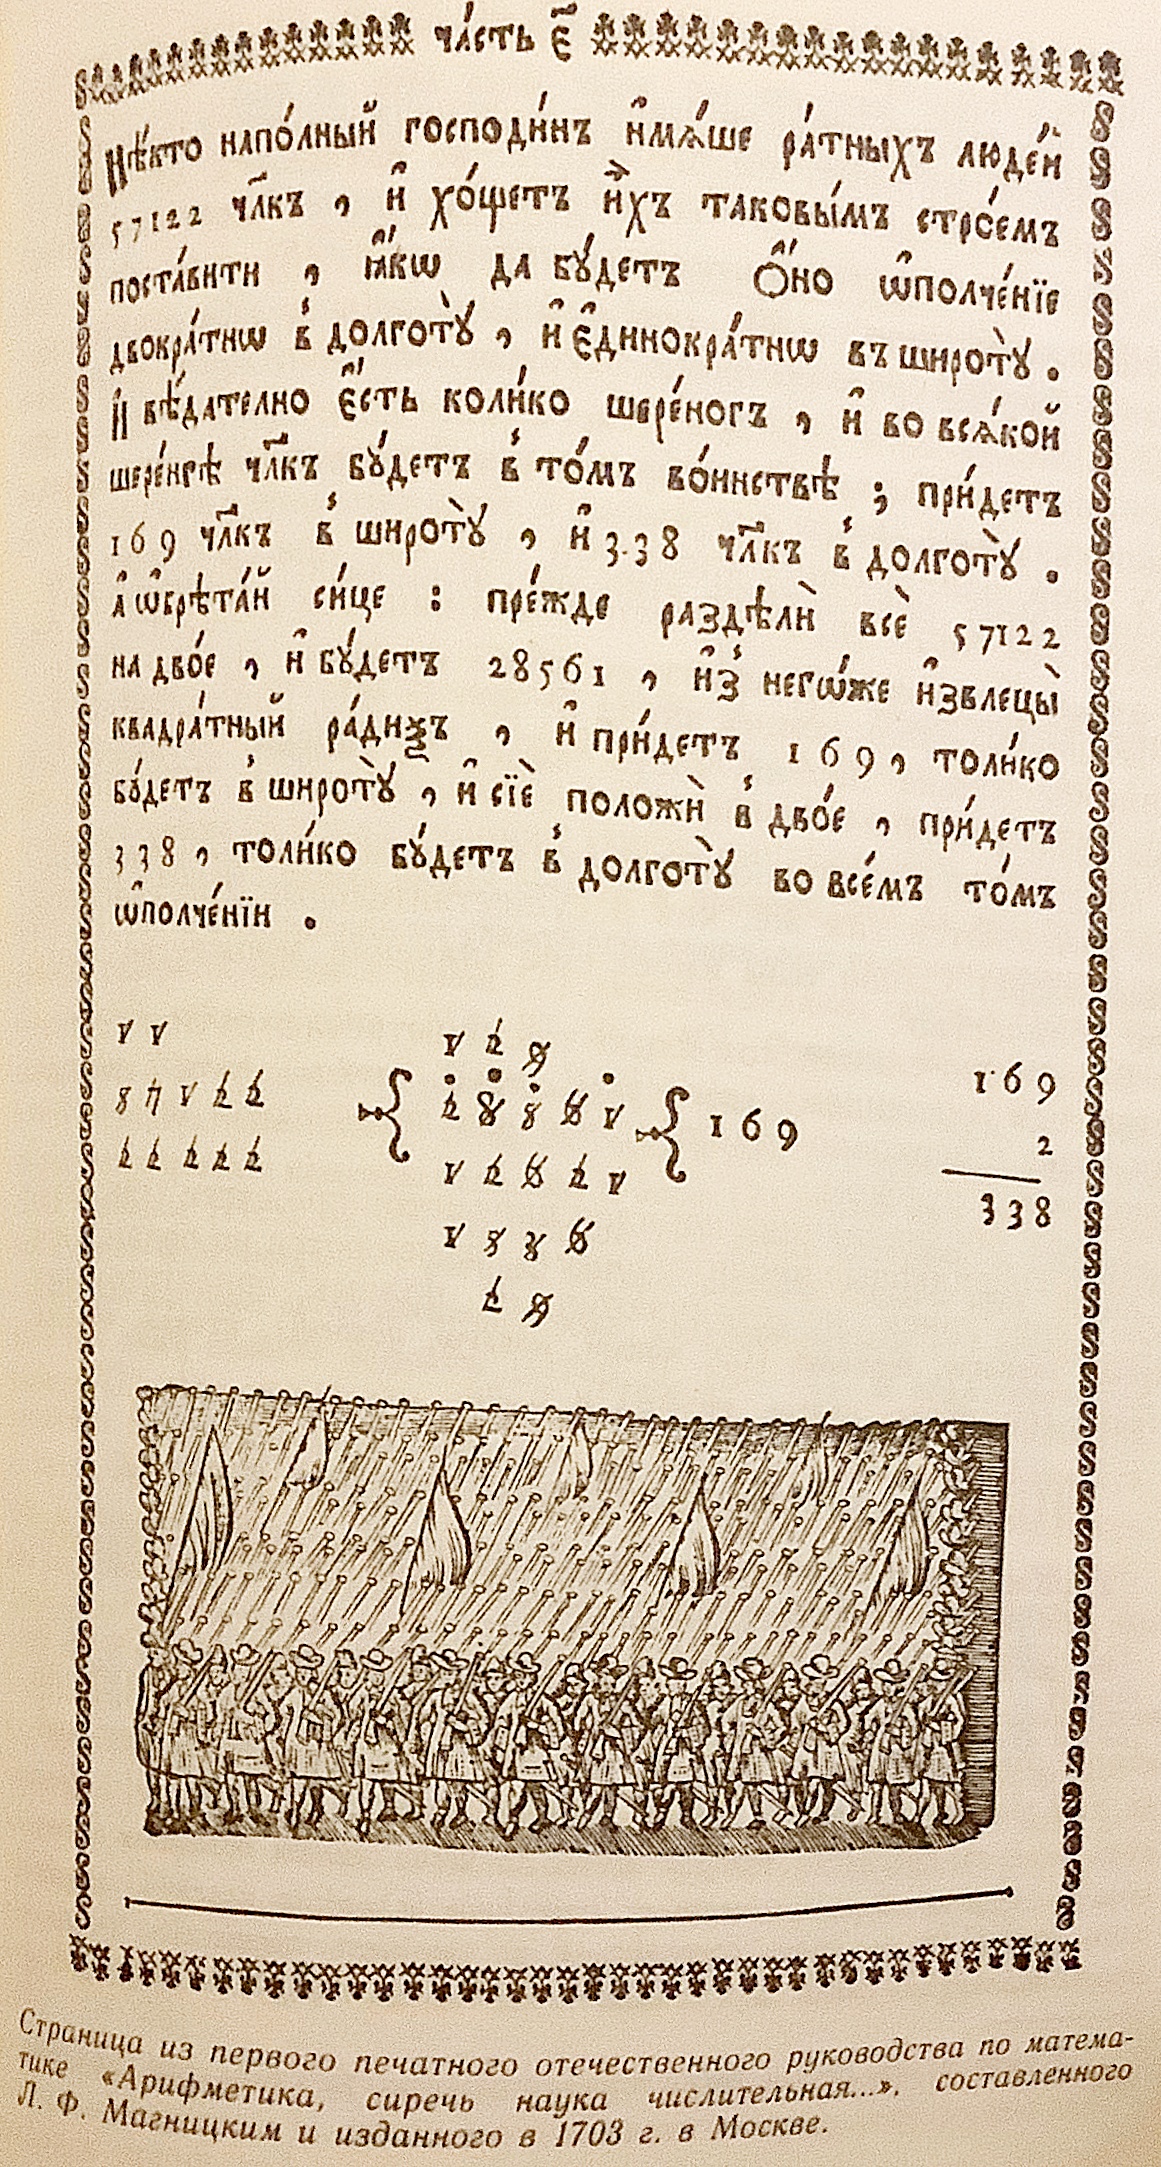 ча́сть є҃
Нѣ́кто напо́лный господи́нъ и҆мѧ́ше ра́тныхъ люде́й
57122 чл҃къ , и҆ хо́щетъ и҆̀хъ таковы́мъ стро́емъ
поста́вити , ꙗ҆́кѡ да бꙋ́детъ Ѻ҆́но ѡ҆полче́нїе
двокра́тнѡ в̾ долготꙋ̀ , и҆ є҆динокра́тнѡ въ широтꙋ̀ .
И҆ вѣ́дателно є҆́сть коли́ко шере́ногъ , и҆ во всѧ́кой
шере́нгѣ чл҃къ бꙋ́детъ в̾ то́мъ во́инствѣ ; прі́идетъ
169 чл҃къ в̾ широтꙋ̀ , и҆ 3.38 чл҃къ в̾ долготꙋ̀ .
а҆ ѡ҆брѣта́й си́це : пре́жде раздѣлѝ всѐ 57122
на дво́е , и҆ бꙋ́детъ 28561 , и҆з̾ негѡ́же и҆звлецы̀
квадра́тный ра́диѯъ , и҆ при́детъ 169 , толи́ко
бꙋ́детъ в̾ широтꙋ̀ , и҆ сїѐ положѝ в̾ дво́е , при́детъ
338 , толи́ко бꙋ́детъ в̾ долготꙋ̀ во все́мъ то́мъ
ѡ҆полче́нїи .
1 1
8 7 1 2 2
2 2 2 2 2
1 2 9
2 8 5 6 1
1 2 6 2 1
169
169
2
338
Страница из первого печатного отечественного руководства по матема-
тике «Арифметика, сиречь наука числительная...», составленного
Л. Ф. Магницким и изданного в 1703 г. в Москве.